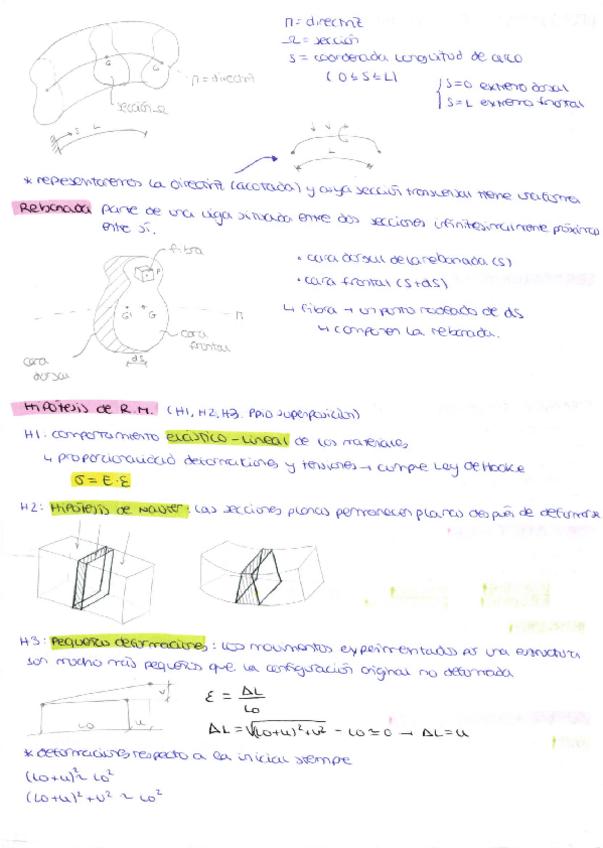 Π = directriz
Ω = sección
S = coordenada longitud de arco
(0 ≤ S ≤ L)
{ S=0 extremo dorsal
S=L extremo frontal
Π = directriz
G
G
sección Ω
S L
L
* representaremos la directriz (acotada) y cuya sección transversal tiene una forma
Rebanada parte de una viga situada entre dos secciones infinitesimalmente próximas
entre sí.
fibra
P
· cara dorsal de la rebanada (S)
· cara frontal (S+dS)
G' G
Π
↳ fibra → un punto rodeado de dS
↳ componen la rebanada.
cara
frontal
cara
dorsal
dS
Hipótesis de R.M. (H1, H2, H3. Ppio superposición)
H1: comportamiento elástico-lineal de los materiales
↳ proporcionalidad deformaciones y tensiones → cumple Ley de Hooke
σ = E·ε
H2: Hipótesis de Navier: las secciones planas permanecen planas después de deformarse
H3: Pequeñas deformaciones: los movimientos experimentados por una estructura
son mucho más pequeños que la configuración original no deformada
v
L0 u
ε = ΔL/L0
ΔL = √(L0+u)²+v² - L0 ≃ 0 → ΔL = u
* deformaciones respecto a la inicial siempre
(L0+u)² ~ L0²
(L0+u)² + v² ~ L0²